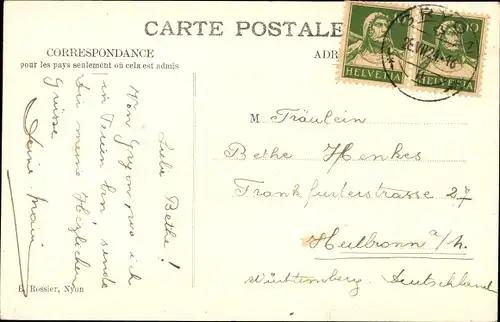 CARTE POSTALE
CORRESPONDANCE
pour les pays seulement où cela est admis
ADR
HELVETIA
HELVETIA
Liebe Bethe!
Von Gryon, wo ich
in Ferien bin, sende
dir meine Herzlichen
Grüsse
M Fräulein
Bethe Henkes
Frankfurterstrasse 27
Heilbronn a/N.
Württemberg. Deutschland
E. Rossier, Nyon